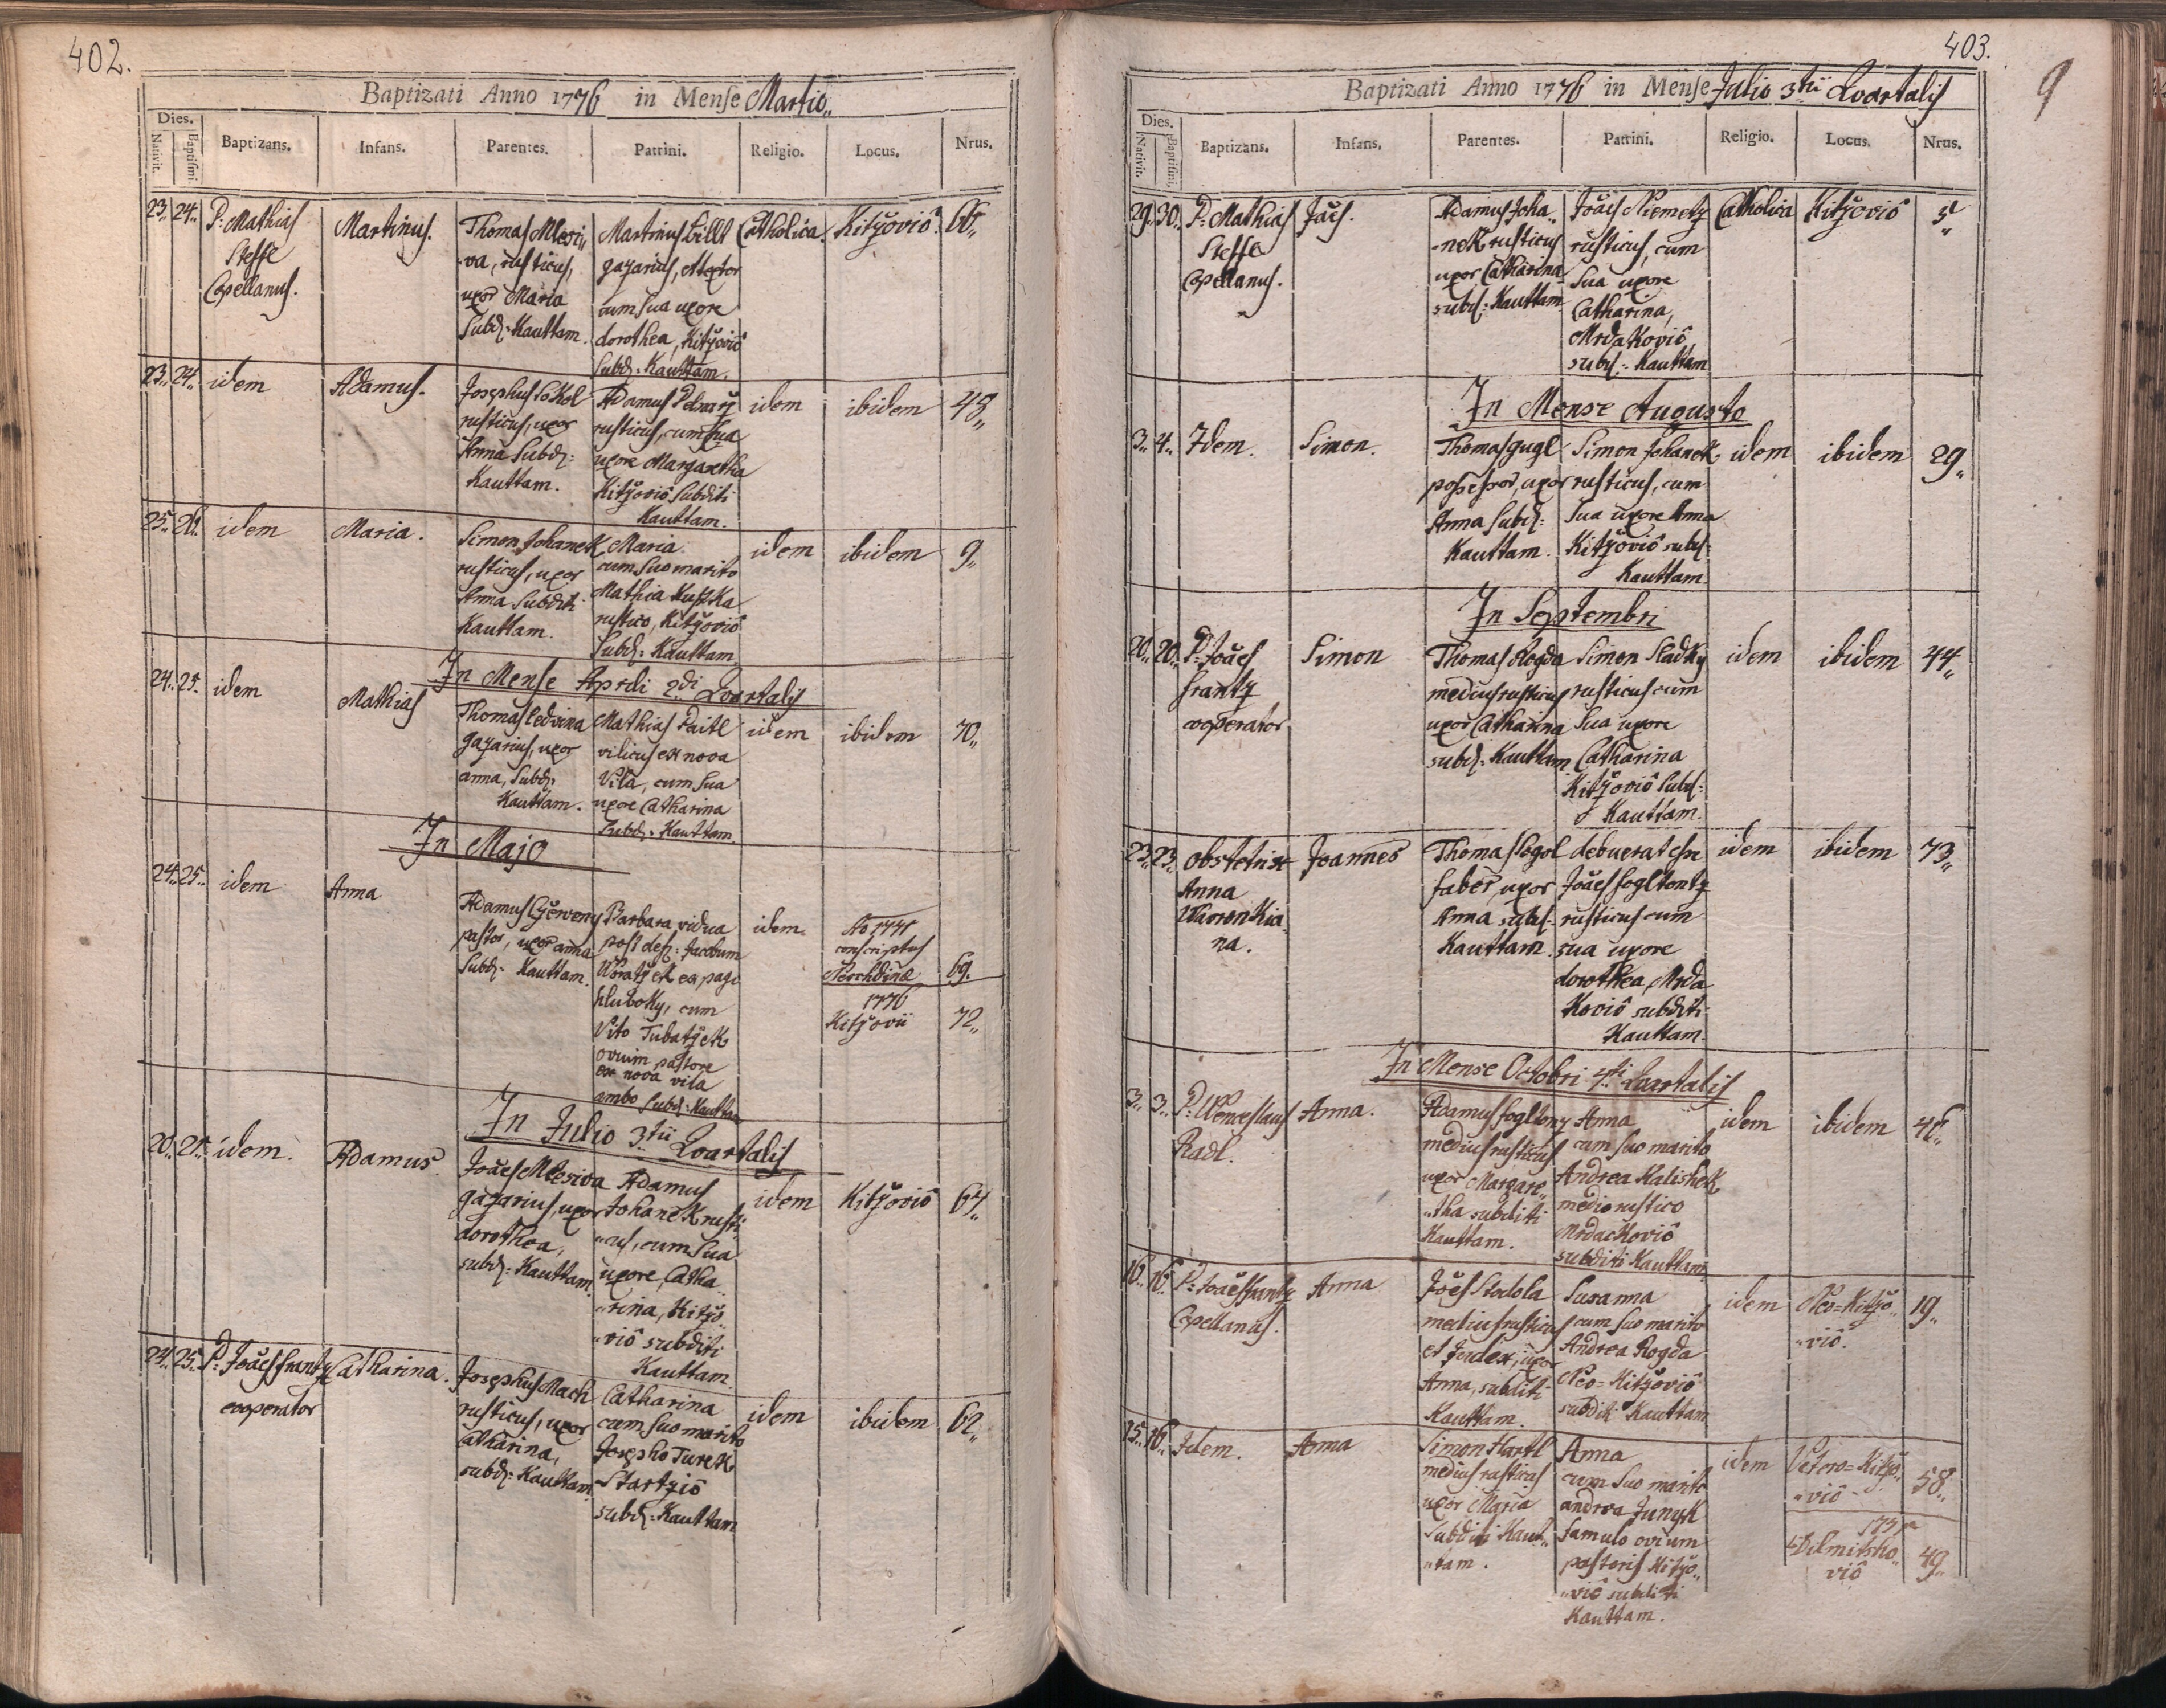 402.
Baptizati Anno 1776 in Mense Martio,,
Dies.
Nativit.
Baptismi
Baptizans.
Infans.
Parentes.
Patrini.
Religio.
Locus.
Nrus.
23,, 24,,
P: Mathias
Steffe
Capellanus.
Martinus.
Thomas
-va, rusticus,
uxor Maria
Subd: Kauttam.
Martinus
gazarius, et textor
cum sua uxore
dorothea, Kitzoviô
Subd: Kauttam.
Catholica.
Kitzoviô.
66,,
23,, 24,,
idem
Adamus.
Josephus Sokol
rusticus, uxor
Anna Subd:
Kauttam.
Adamus
rusticus, cum sua
uxore Margaretha
Kitzoviô Subditi
Kauttam.
idem
ibidem
48,,
25,, 26,,
idem
Maria.
Simon Johanek
rusticus, uxor
Anna Subditi
Kauttam.
Maria
cum suo marito
Mathia
rustico, Kitzoviô
Subd: Kauttam
idem
ibidem
9,,
In Mense Aprili 2di Quartalis
24,, 25,,
idem
Mathias
Thomas Ledvina
gazarius, uxor
anna, Subd:
Kauttam.
Mathias Paitl
vilicus ex nova
Villa, cum sua
uxore Catharina
Subd: Kauttam.
idem
ibidem
70,,
In Majo
24,, 25,,
idem
Anna
Adamus Czerveny
pastor, uxor anna
Subd: Kauttam.
Barbara vidua
post def: Jacobum
ex pago
hluboky, cum
Vito Tubatzek
ovium pastore
ex nova vila
ambo Subd: Kauttam
idem.
Ao 1771
conscriptus
69.
1776
Kitzovii
72,,
In Julio 3tii Quartalis
20,, 21,,
idem.
Adamus.
Joães
gazarius, uxor
dorothea,
subd: Kauttam.
Adamus
Johanek rusti
,,cus, cum sua
uxore, Catha,,
,,rina, Kitzo,,
,,viô subditi
Kauttam.
idem
Kitzoviô
64,,
24,, 25,,
P: Joães frantz
cooperator
Catharina.
Josephus Mach
rusticus, uxor
Catharina,
subd: Kauttam.
Catharina
cum suo marito
Josepho Turek
Startziô
subd: Kauttam
idem
ibidem
62,,
403.
9
Baptizati Anno 1776 in Mense Julio 3tii Quartalis
Dies.
Nativit.
Baptismi.
Baptizans.
Infans.
Parentes.
Patrini.
Religio.
Locus.
Nrus.
29,, 30,,
P: Mathias
Steffe
Capellanus.
Joães.
Adamus Joha,,
-nek rusticus
uxor Catharina
subd: Kauttam.
Joães Niemetz
rusticus, cum
sua uxore
Catharina,
Mrdakoviô,
subd: Kauttam
Catholica
Kitzoviô
5,,
In Mense Augusto
3,, 4,,
Idem.
Simon.
Thomas gugl
possessor, uxor
Anna Subd:
Kauttam.
Simon Johanek
rusticus, cum
sua uxore Anna
Kitzoviô subd:
Kauttam.
idem
ibidem
29,,
In Septembri
20,, 20,,
P: Joães
frantz
cooperator
Simon
Thomas Rogda
medius rusticus
uxor Catharina
subd: Kauttam
Simon Sladky
rusticus cum
sua uxore
Catharina
Kitzoviô Subd:
Kauttam.
idem
ibidem
44,,
23,, 23,,
obstetrix
Anna
na.
Joannes
Thomas Rogol
faber, uxor
Anna subd:
Kauttam.
debuerat esse
Joães fogltontz
rusticus cum
sua uxore
dorothea, Mrda
koviô subditi
Kauttam.
idem
ibidem
73,,
In Mense Octobri 4ti Quartalis
3,, 3,,
P: Wenceslaus
Radl.
Anna.
Adamus fogltonz
medius rusticus
uxor Margare,,
,,tha subditi
Kauttam.
Anna
cum suo marito
Andrea Kalishek
medio rustico
Mrdackoviô
subditi Kauttam
idem
ibidem
46,,
16,, 16,,
P: Joães frantz
Capellanus.
Anna
Joães Stodola
medius rusticus
et Judex, uxor
Anna, subditi
Kauttam.
Susanna
cum suo marito
Andrea Rogda
Neo=Kitzoviô
subditi Kauttam
idem
Neo=Kitzo,,
,,viô.
19,,
15,, 16,,
Idem.
Anna
Simon Hartl
medius rusticus
uxor Maria
Subditi Kaut,,
,,tam.
Anna
cum suo marito
andrea Junyk
famulo ovium
pastoris Kitzo,,
,,viô subditi
Kauttam.
idem
Vetero=Kitzo,,
,,viô
58,,
1771
viô
49,,